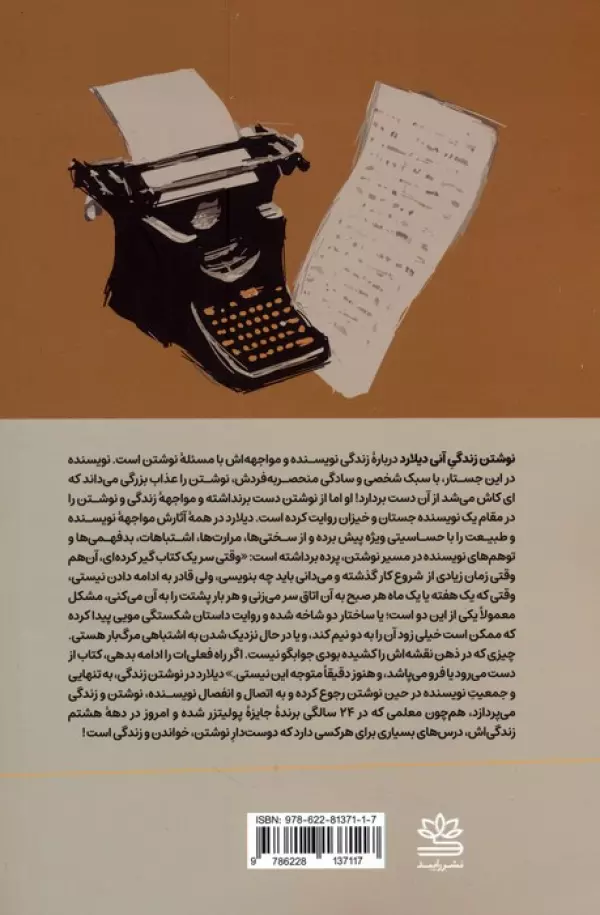 نوشتن زندگیِ آنی دیلارد دربارهٔ زندگی نویسنده و مواجهه‌اش با مسئلهٔ نوشتن است. نویسنده
در این جستار، با سبک شخصی و سادگی منحصربه‌فردش، نوشتن را عذاب بزرگی می‌داند که
ای کاش می‌شد از آن دست بردارد! او اما از نوشتن دست برنداشته و مواجههٔ زندگی و نوشتن را
در مقام یک نویسنده جستان و خیزان روایت کرده است. دیلارد در همهٔ آثارش مواجههٔ نویسنده
و طبیعت را با حساسیتی ویژه پیش برده و از سختی‌ها، مرارت‌ها، اشتباهات، بدفهمی‌ها و
توهم‌های نویسنده در مسیر نوشتن، پرده برداشته است: «وقتی سر یک کتاب گیر کرده‌ای، آن‌هم
وقتی زمان زیادی از شروع کار گذشته و می‌دانی باید چه بنویسی، ولی قادر به ادامه دادن نیستی،
وقتی که یک هفته یا یک ماه هر صبح به آن اتاق سر می‌زنی و هر بار پشتت را به آن می‌کنی، مشکل
معمولاً یکی از این دو است؛ یا ساختار دو شاخه شده و روایت داستان شکستگی مویی پیدا کرده
که ممکن است خیلی زود آن را به دو نیم کند، و یا در حال نزدیک شدن به اشتباهی مرگ‌بار هستی.
چیزی که در ذهن نقشه‌اش را کشیده بودی جوابگو نیست. اگر راه فعلی‌ات را ادامه بدهی، کتاب از
دست می‌رود یا فرو می‌پاشد، و هنوز دقیقاً متوجه این نیستی.» دیلارد در نوشتن زندگی، به تنهایی
و جمعیتِ نویسنده در حین نوشتن رجوع کرده و به اتصال و انفصال نویسنده، نوشتن و زندگی
می‌پردازد، هم‌چون معلمی که در ۲۴ سالگی برندهٔ جایزهٔ پولیتزر شده و امروز در دههٔ هشتم
زندگی‌اش، درس‌های بسیاری برای هرکسی دارد که دوست‌دارِ نوشتن، خواندن و زندگی است!
ISBN: 978-622-81371-1-7
9 786228 137117
نشر رایبد